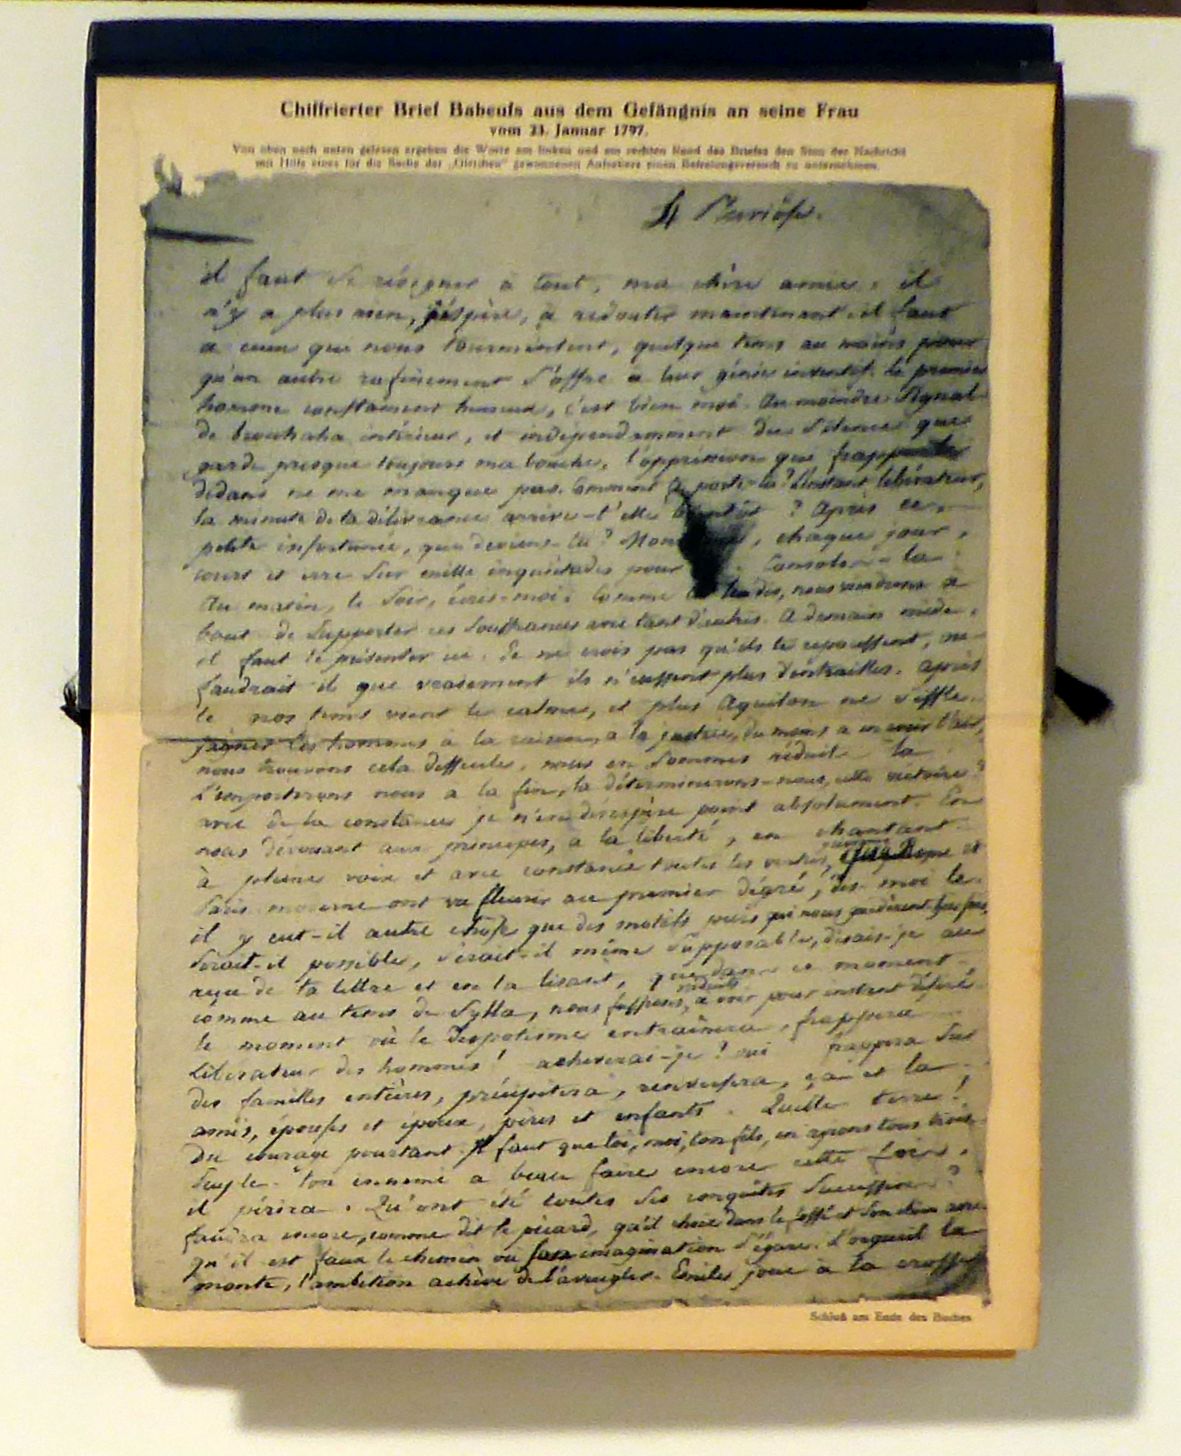 Chiffrierter Brief Babeufs aus dem Gefängnis an seine Frau
vom 23. Januar 1797.
Von oben nach unten gelesen ergeben die Worte am linken und am rechten Rand des Briefes den Sinn der Nachricht
mit Hilfe eines für die Sache der „Gleichen“ gewonnenen Aufsehers einen Befreiungsversuch zu unternehmen.
4 Pluviôse.
il faut se résigner à tout, ma chère amie, il
n'y a plus rien, j'espère, à redouter maintenant il faut
a ceux qui nous tourmentent, quelque tems au moins pour
qu'un autre rafinement s'offre à leur génie inventif. Le premier
homme constament heureux, c'est bien moi. Au moindre signal
de brouhaha intérieur, et indépendamment du silence que
garde presque toujours ma bouche, l'oppression que
dedans ne me manque pas. Comment porte-la? L'instant libérateur,
la minute de ta délivrance arrive-t'elle ? Après ce,
petite infortunée, que deviens-tu? Mon , chaque jour,
court et erre sur mille inquiétudes pour Consoler-la
Au matin, le soir, écris-moi. Comme tu dis, nous viendrons à
bout de supporter ces souffrances avec tant d'autres. A demain
il faut te présenter ici. Je ne crois pas qu'ils te repoussent, ne
faudrait il que vraiement ils n'eussent plus d'entrailles. Après
le nos tems vient le calme, et plus Aquilon ne siffle.
les hommes à la raison, à la justice, du moins à en avoir l'air,
nous trouvons cela difficile. nous en sommes réduit la
L'emporterons nous a la fin, la déterminerons-nous, cette victoire?
avec de la constance je n'en désespère point absolument. En
nous dévouant aux principes, à la liberté, en chantant
à pleine voix et avec constance toutes les vertus, Rome et
Paris moderne ont va fleurir au premier dégré; dis-moi le
il y eut-il autre chose que des motifs purs qui nous guidèrent
Serait-il possible, serait-il même supposable, disais-je au
reçu de ta lettre et en la lisant, que dans ce moment
comme au tems de Sylla, nous réduits à voir pour instant
le moment où le despotisme entraînera, frappera
Libérateur des hommes! acheverai-je? oui frappera sur
des familles entières, précipitera, renversera, çai et la
amis, épouses et époux, pères et enfants. Quelle terre!
Du courage pourtant. Il faut que toi, moi, ton fils, en ayons tous trois.
ton ennemi a beau faire encore cette fois,
il périra. Qu'ont été toutes ses conquêtes ?
faudra encore, comme dit le picard, qu'il
qu'il est faux le chemin où son imagination s'égare. L'orgueil la
monte, l'ambition achève de l'aveugler. Emile joue a la
Schluß am Ende des Buches